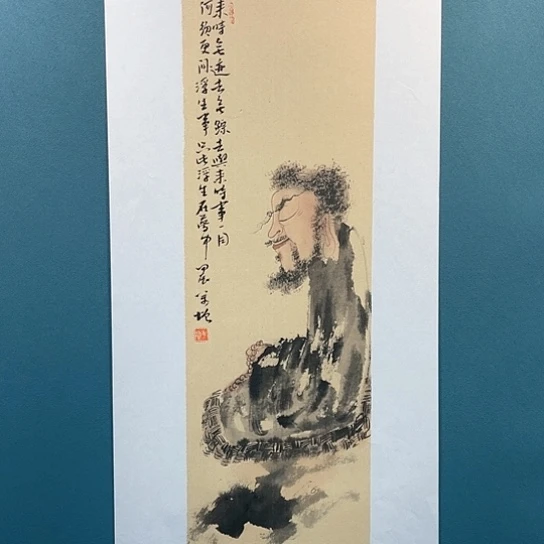 来時無迹去無踪去與来時事一同
何須更問浮生事只此浮生在夢中